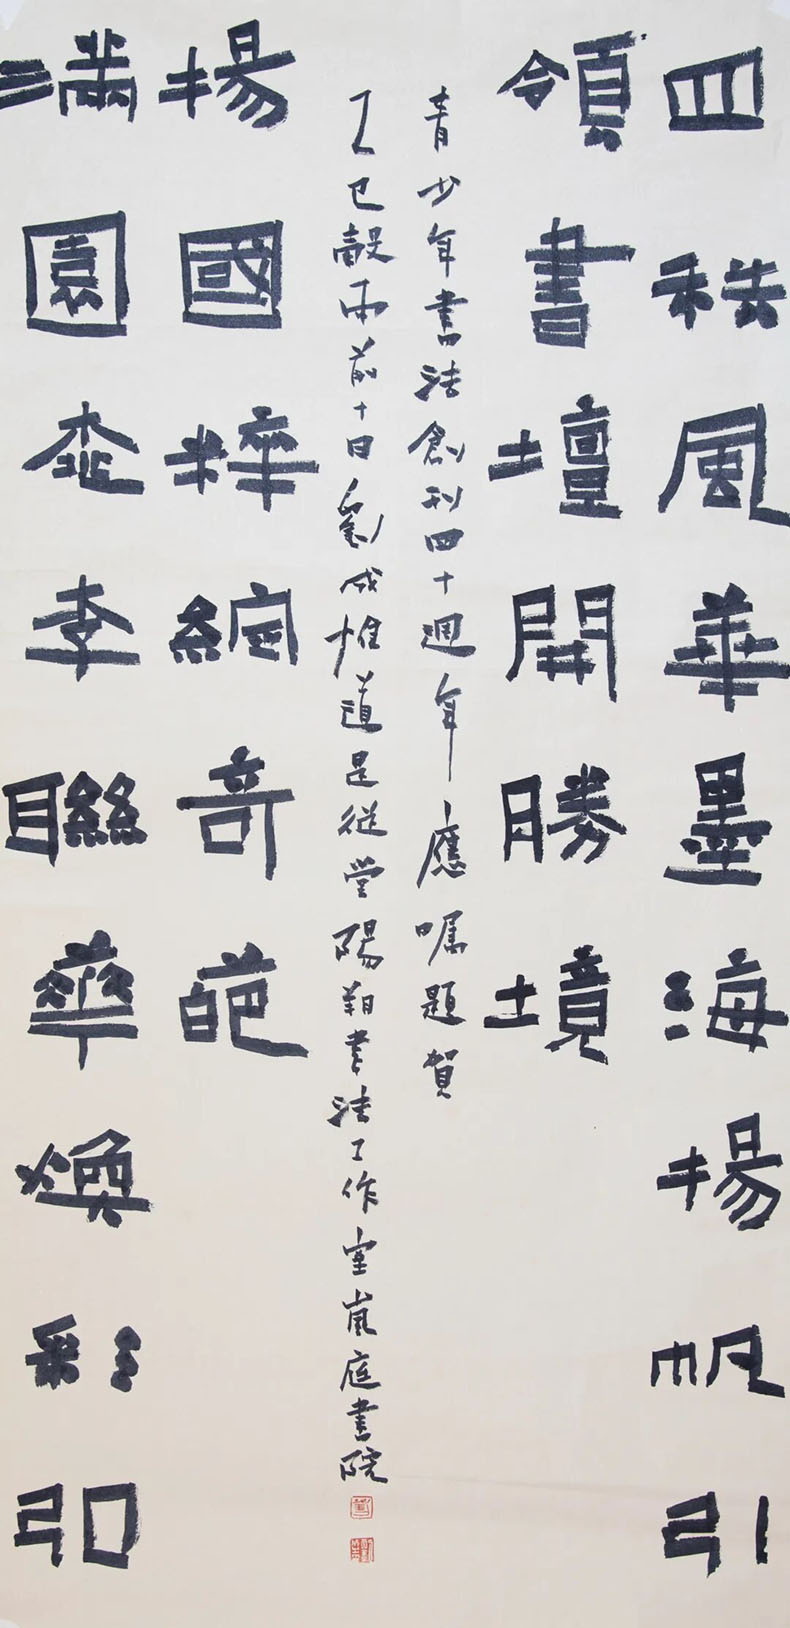 四秩風華墨海揚帆引
領書壇開勝境
滿園桃李聯華煥彩弘
揚國粹綻奇葩
青少年書法創刊四十週年應囑題賀
乙巳穀雨前十日劉成惟道是從堂陽朔書法工作室嵐庭書院